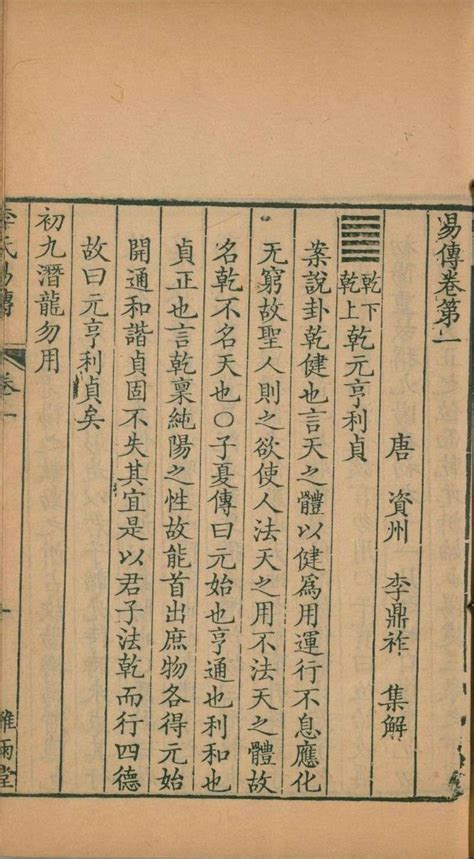 易傳卷第一
唐 資州 李鼎祚 集解
乾下乾上 乾元亨利貞
案說卦乾健也言天之體以健爲用運行不息應化
无窮故聖人則之欲使人法天之用不法天之體故
名乾不名天也○子夏傳曰元始也亨通也利和也
貞正也言乾稟純陽之性故能首出庶物各得元始
開通和諧貞固不失其宜是以君子法乾而行四德
故曰元亨利貞矣
初九潛龍勿用
李氏易傳 卷一 一 雅雨堂